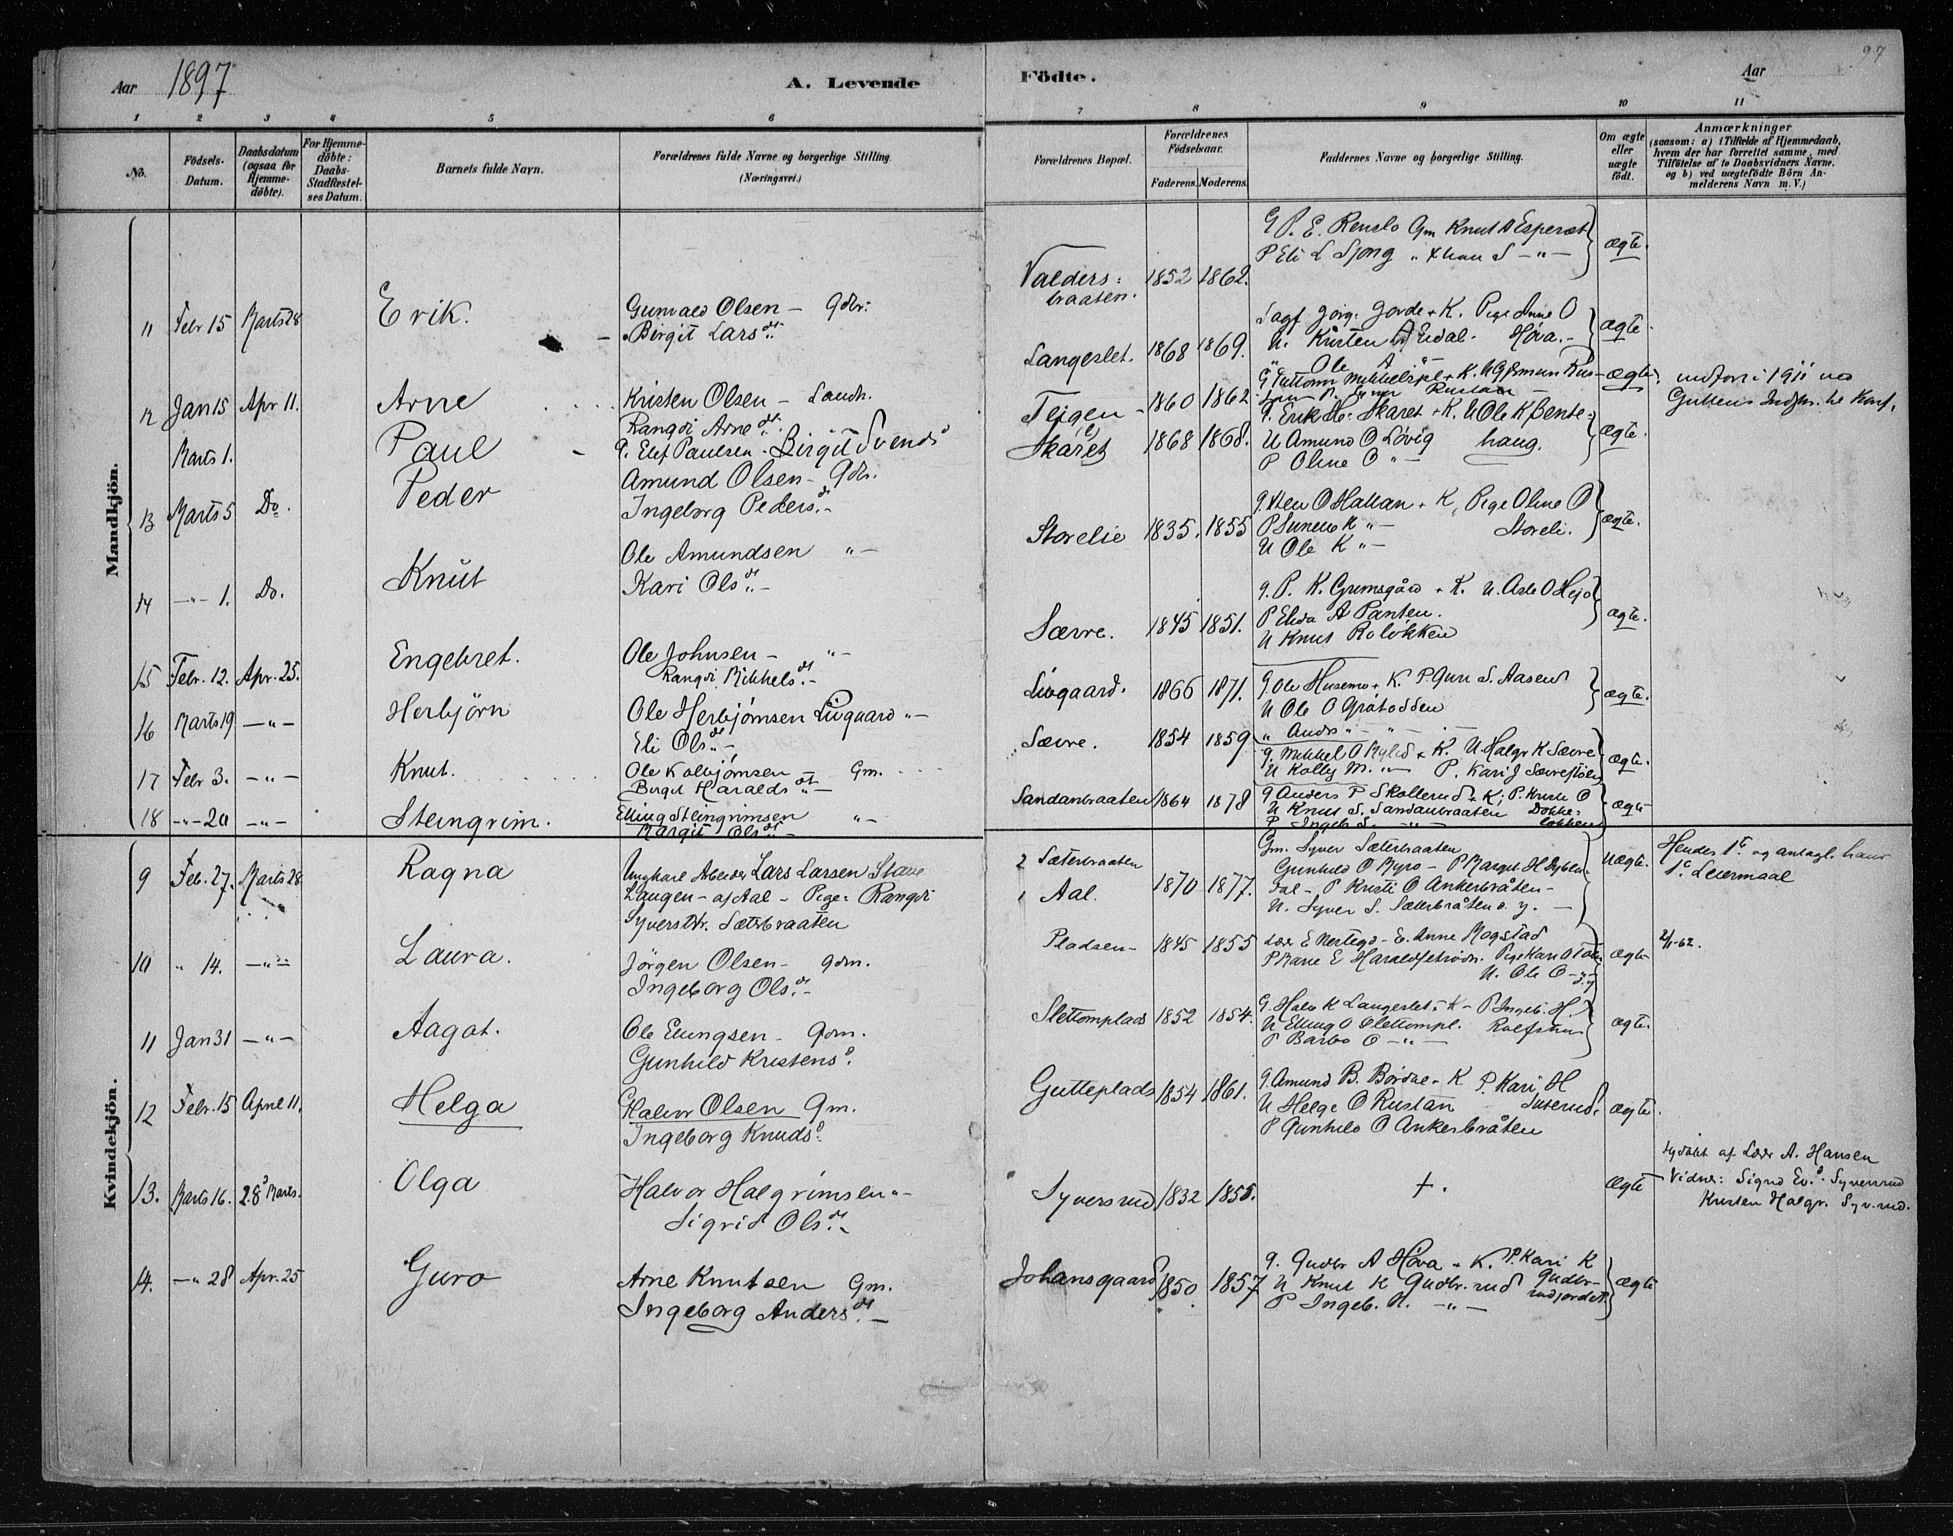 97
Aar 1897 A. Levende Födte. Aar
1 2 3 4 5 6 7 8 9 10 11
No.
Födsels-Datum.
Daabsdatum (ogsaa for Hjemme-döbte).
For Hjemme-döbte: Daabs-Stadfæstelses Datum.
Barnets fulde Navn.
Forældrenes fulde Navne og borgerlige Stilling.
(Næringsvei.)
Forældrenes Bopæl.
Forældrenes Födselsaar.
Faderens. Moderens.
Faddernes Navne og borgerlige Stilling.
Om ægte eller uægte födt.
Anmærkninger
(saasom: a) i Tilfælde af Hjemmedaab, hvem der har forrettet samme, med Tilföielse af to Daabsvidners Navne. og b) ved uægtefödte Börn Anmelderens Navn m. V.)
Mandkjön.
11 Febr 15 Marts 28 Erik. Gunvald Olsen – Gdbr.
Birgit Larsdt.
Valdersbraaten. 1852 1862.
Knut A Esperset
P Eli L Sjong
ægte.
12 Jan 15 Apr 11. Arne Kristen Olsen – Landh.
Rangdi Arnedt.
Langeslet. 1868 1869.
Jorde + K. Pige Anne O
U. Kristen A Endal. Höva.
Ole A
ægte.
Marts 1. Paul G. Elef Paulsen. Birgit Svends
Teigen 1860 1862
ægte. 1911
13 Marts 5 Do. Peder Amund Olsen – Gdbr.
Ingeborg Pedersdt. –
Skaret 1868 1868.
G. Erik H. Skaret + K. U Ole K Bente-
U Amund O Lövig haug.
P Oline O " –
ægte.
14 – " – 1. Do. Knut Ole Amundsen " –
Kari Olsdt. –
Storelie 1835. 1855
O Hallan + K, Pige Oline O
P K " – Storeli.
U Ole K " –
ægte.
15 Febr. 12. Apr. 25. Engebret. Ole Johnsen – " –
Rangdi Mikkelsdt. –
Sævre. 1845 1851.
G. P. K. Grimsgård + K. U. Asle O Hejo
P Elida A Panten.
U Knut Rolökken
ægte.
16 Marts 19 – " – Herbjörn Ole Herbjörnsen Livgaard " –
Eli Olsdt. –
Livgaard. 1866 1871.
G. Ole Husemo + K. P. Guri S. Aasend
U Ole O Gråtodden
" Andr " –
ægte.
17 Febr 3. – " – Knut. Ole Kolbjörnsen Gm.
Birgit Haraldsdt –
Sævre. 1854 1859
G. Mikkel O + K. U. Halgr K Sævre
U Kolbj M. " – P. Kari J Sævrestölen
ægte.
18 – " – 20 – " – Steingrim. Elling Steingrimsen " –
Margit Olsdt –
Sandanbraaten 1864 1878
G Anders P Skollerud + K; P. Kristi O
U Knut S. Sandanbraaten Dokke-
P Ingeb S. – " – lökken
ægte
Kvindekjön.
9 Feb. 27. Marts 28 Ragna Ungkarl Arbeider Lars Larsen Stave
Laugen – af Aal – Pige: Rangdi
Syversdtr. Sæterbraaten
2 Sæterbraaten
1 Aal. 1870 1877.
Gm. Syver Sæterbraaten
Gunhild O Myro – P Margit H
dal – P Kristi O Ankerbråten –
U. Syver S. Sæterbråten d. y. –
Uægte. Hendes 1ste og antagl. hans
1ste Leiermaal
10 " 14. – " – Laura. Jörgen Olsen – Gdm.
Ingeborg Olsdt. –
Pladsen – 1845 1855
E. Anne Mogstad
P Marie E Pige Kari O
U. Ole O – " –
ægte 2/1-62.
11 Jan 31 – " – Aagot. Ole Ellingsen – Gdm.
Gunhild Kristensd.
Slettomplads 1852 1854.
G. Halv K Langeslet + K – P. Ingeb. H.
U Elling O Slettompl. Rolfsrun
P Barbo O – " –
ægte.
12 Febr. 15 April 11. Helga Halvor Olsen Gm.
Ingeborg Knudsd.
Gutteplads 1854 1861.
G. Amund B. Bördal + K P Kari H
U Helge O Rustan
P Gunhild O Ankerbråten
ægte.
13. Marts 16. 28 Marts. Olga Halvor Halgrimsen " –
Sigrid Olsdt. –
Syversrud 1832 1855.
+. ægte
Hjdöbt af Lær A. Hansen
Vidner: Sigrid Syversrud
Kristen Halgr. Syv.rud.
14. – " 28 Apr. 25 Guro Arne Knutsen Gm.
Ingeborg Andersdt. –
Johansgaard 1850. 1857
G. Gudbr A Höva + K. P. Kari K
U Knut K Gudbr.rud Gudbr-
P Ingeb. K. – " – rudjordet.
ægte